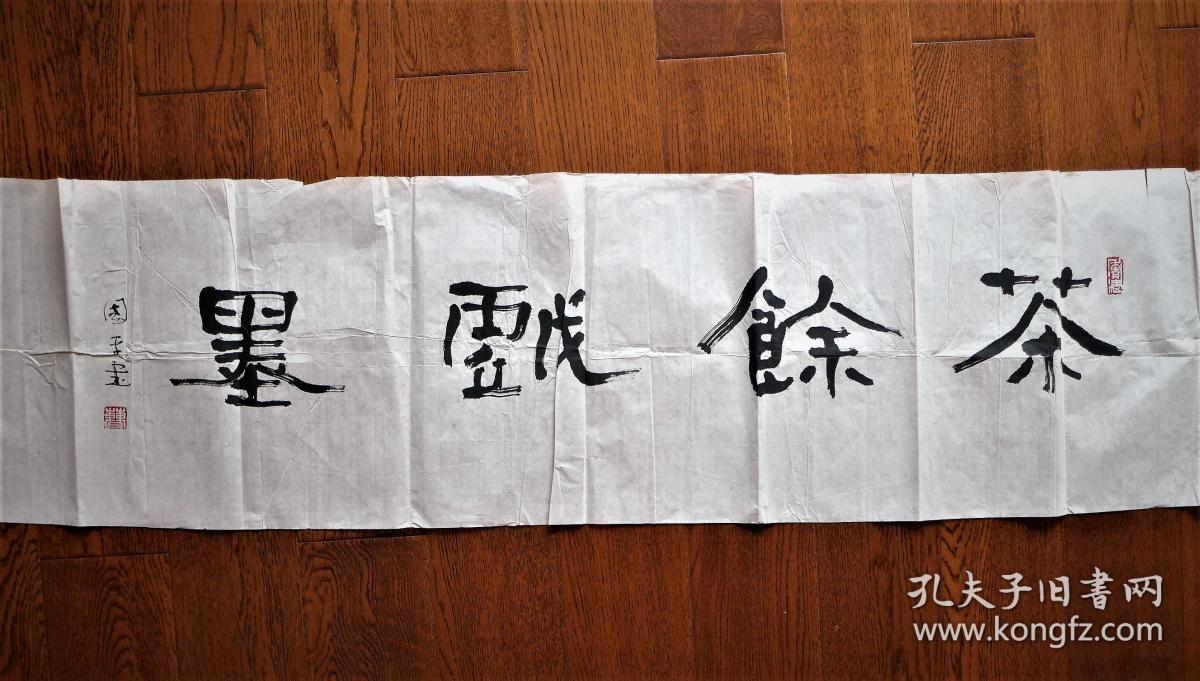 茶餘戲墨
孔夫子旧書网
www.kongfz.com